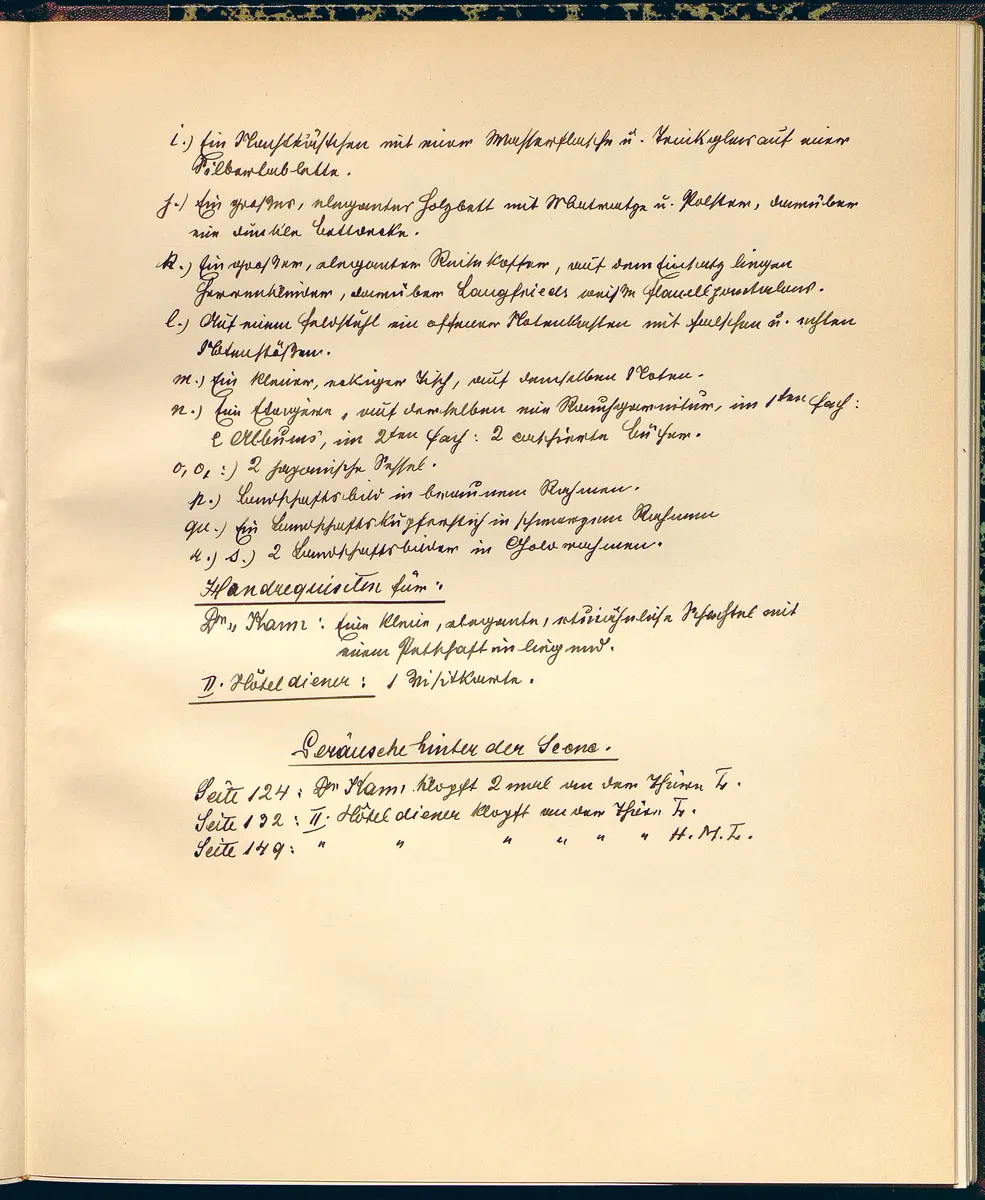 i.) Ein Nachtkästchen mit einer Wasserflasche u. Trinkglas auf einer
Silbertablette.
j.) Ein großes, elegantes Holzbett mit Matratze u. Polster, darüber
eine dunkle Bettdecke.
k.) Ein großer, eleganter Reisekoffer, auf dem Einsatz liegen
Herrenkleider, darüber Langfrieds weiße Flanellpantalons.
l.) Auf einem Feldstuhl ein offener Notenkasten mit falschen u. echten
Notenstößen.
m.) Ein kleiner, eckiger Tisch, auf demselben Noten.
n.) Eine Etagère, auf derselben eine Rauchgarnitur, im 1ten Fach:
2 Albums, im 2ten Fach: 2 cachierte Bücher.
o, o, :) 2 japanische Sessel.
p.) Landschaftsbild in braunem Rahmen.
qu.) Ein Landschaftskupferstich in schwarzem Rahmen
r.) s.) 2 Landschaftsbilder in Goldrahmen.
Handrequisiten für:
Dr. Kann: Eine kleine, elegante, etuiähnliche Schachtel mit
einem Petschaft inliegend.
II. Hôteldiener: 1 Visitkarte.
Geräusche hinter der Scene.
Seite 124: Dr Kann klopft 2 mal an der Thüre L.
Seite 132: II. Hôteldiener klopft an der Thüre L.
Seite 149: " " " " " " H. M. L.